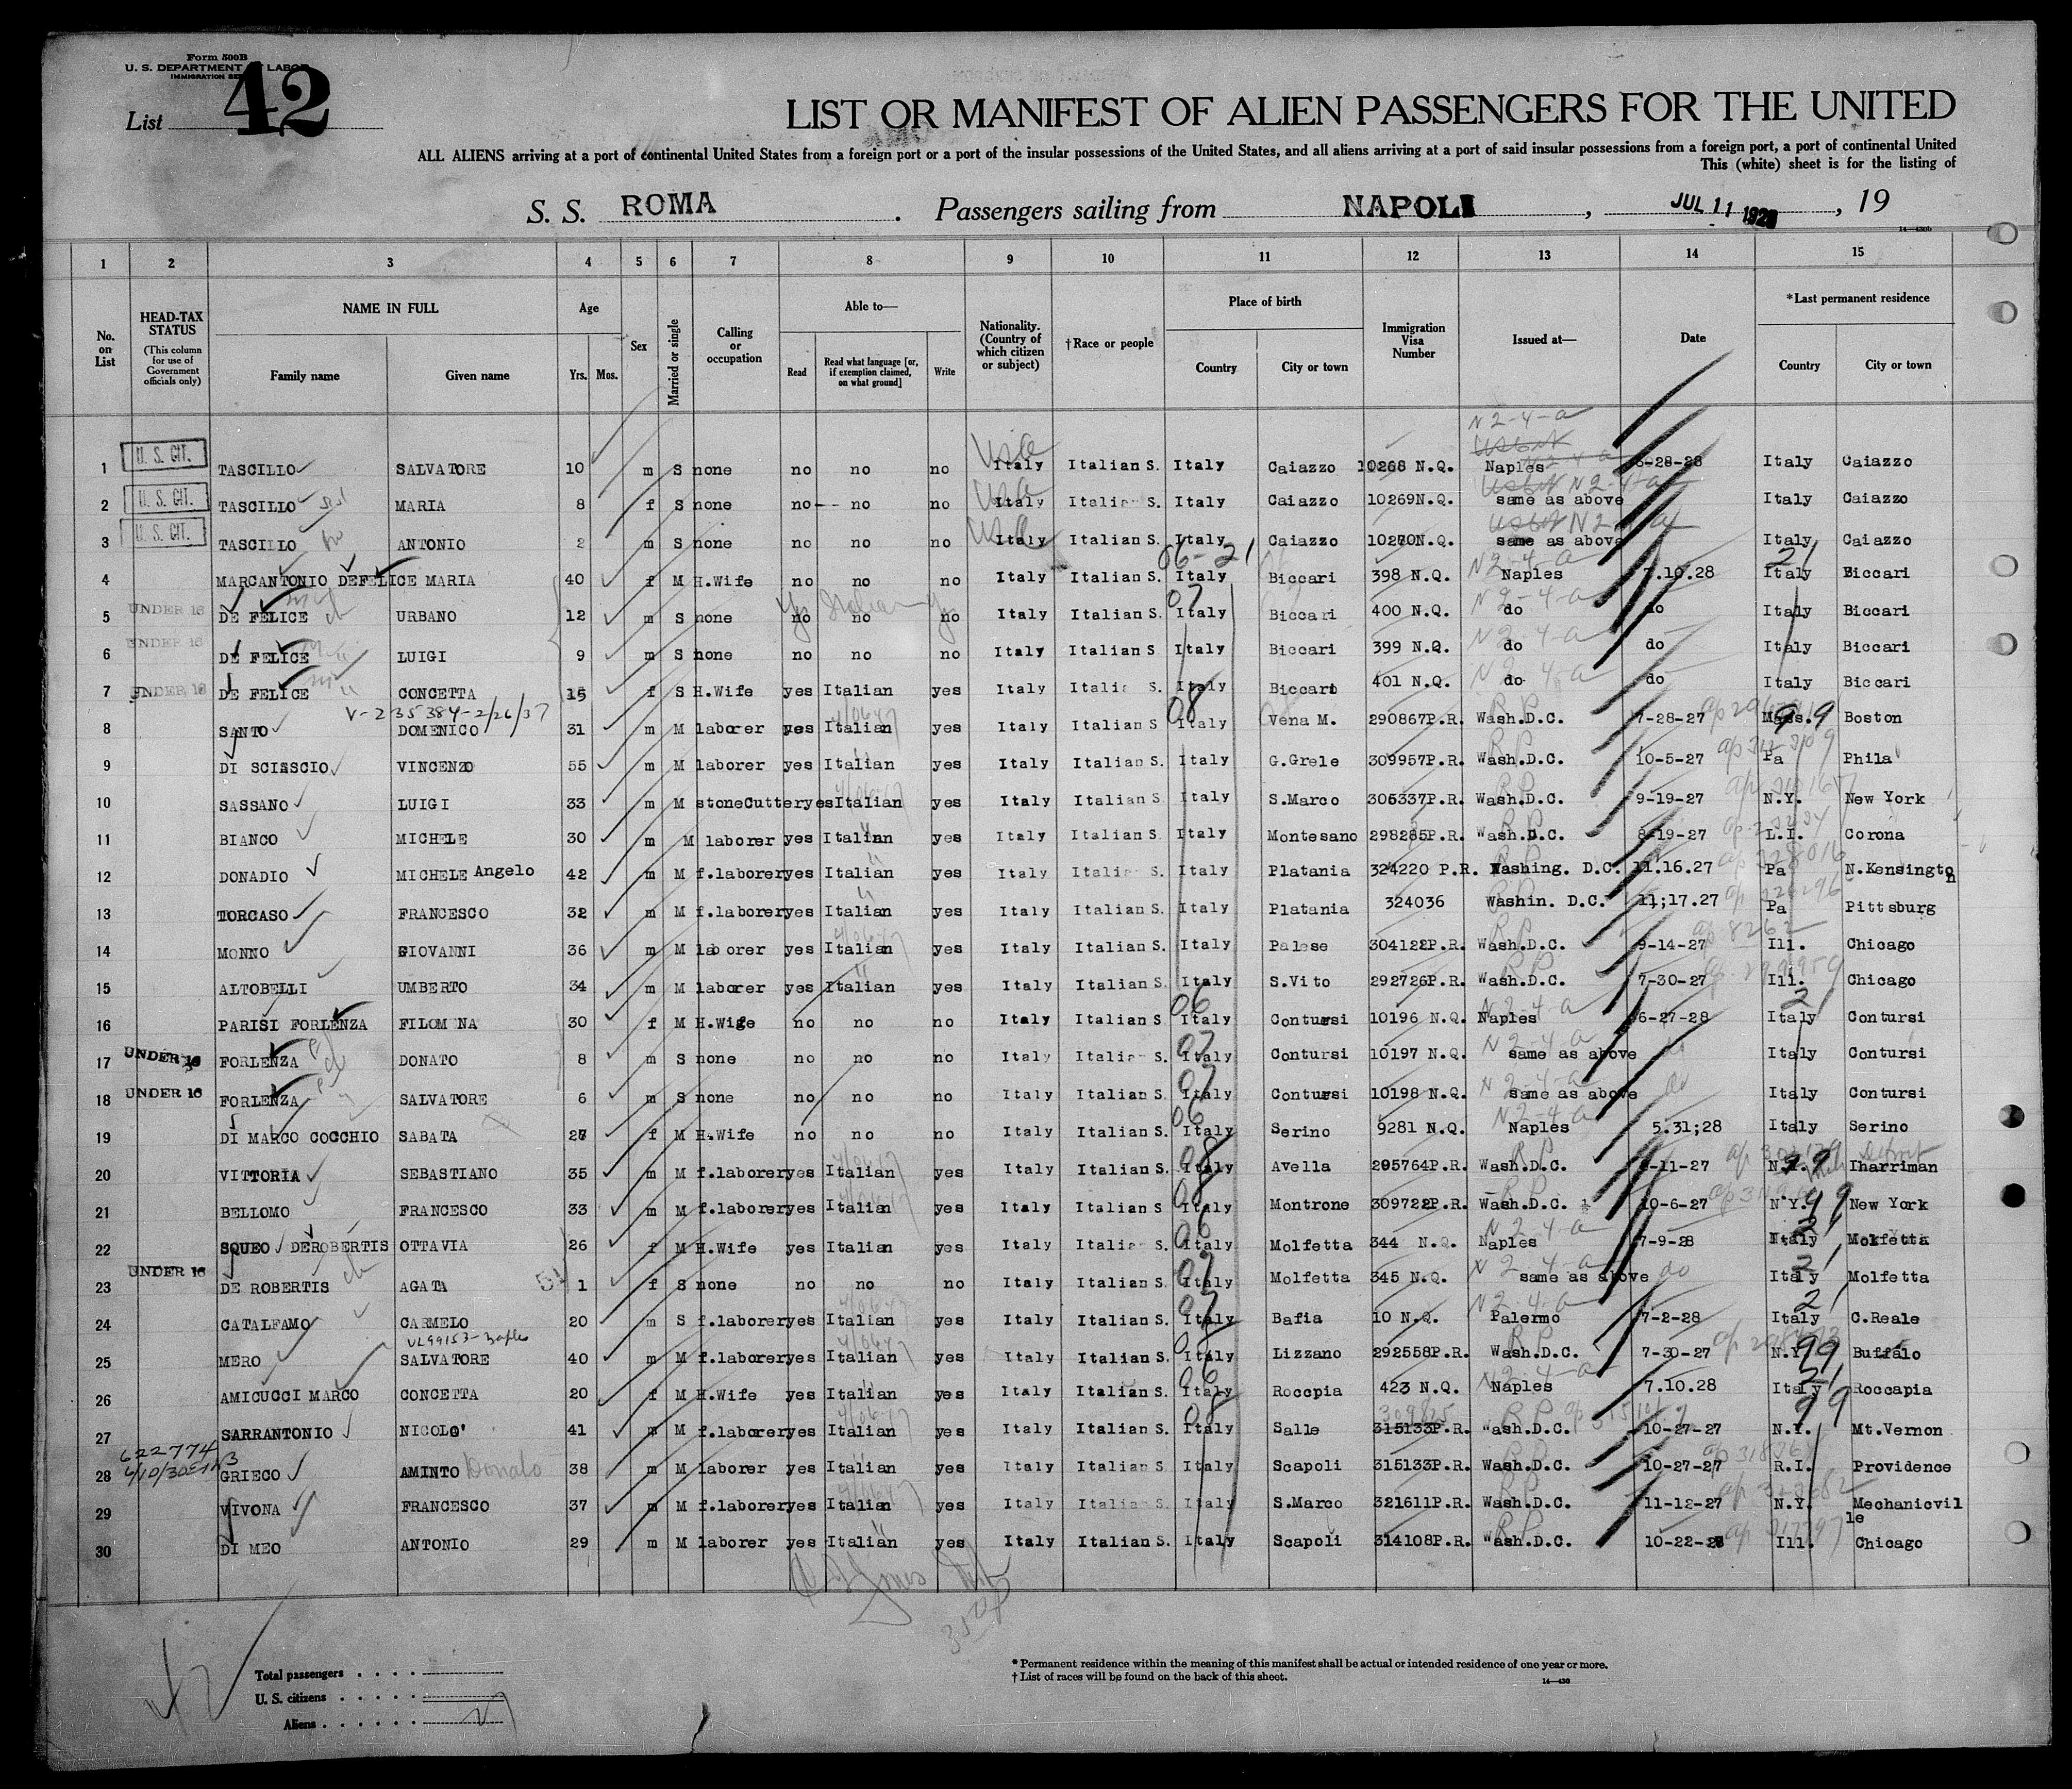 Form 500B
U. S. DEPARTMENT OF LABOR
IMMIGRATION SER
List 42
LIST OR MANIFEST OF ALIEN PASSENGERS FOR THE UNITED
ALL ALIENS arriving at a port of continental United States from a foreign port or a port of the insular possessions of the United States, and all aliens arriving at a port of said insular possessions from a foreign port, a port of continental United
This (white) sheet is for the listing of
S. S. ROMA . Passengers sailing from NAPOLI , JUL 11 1928 , 19
1 2 3 4 5 6 7 8 9 10 11 12 13 14 15
No. on List
HEAD-TAX STATUS (This column for use of Government officials only)
NAME IN FULL Family name Given name
Age Yrs. Mos.
Sex
Married or single
Calling or occupation
Able to— Read Read what language [or, if exemption claimed, on what ground] Write
Nationality. (Country of which citizen or subject)
†Race or people
Place of birth Country City or town
Immigration Visa Number
Issued at—
Date
*Last permanent residence Country City or town
N 2-4-a
1 U. S. CIT. TASCILLO SALVATORE 10 m S none no no no Italy USA Italian S. Italy Caiazzo 10268 N.Q. Naples 6-28-28 Italy Caiazzo
2 U. S. CIT. TASCILLO MARIA 8 f S none no no no Italy USA Italian S. Italy Caiazzo 10269N.Q. same as above N 2-4-a Italy Caiazzo
3 U. S. CIT. TASCILLO ANTONIO 2 m S none no no no Italy USA Italian S. Italy Caiazzo 10270N.Q. same as above Italy Caiazzo
4 MARCANTONIO DEFELICE MARIA 40 f M H.Wife no no no Italy Italian S. Italy 06-21 Biccari 398 N.Q. Naples N 2-4-a 7.10.28 Italy 21 Biccari
5 UNDER 16 DE FELICE URBANO 12 m S none no no no Italy Italian S. Italy 07 Biccari 400 N.Q. do N 2-4-a do Italy Biccari
6 UNDER 16 DE FELICE LUIGI 9 m S none no no no Italy Italian S. Italy Biccari 399 N.Q. do N 2-4-a do Italy Biccari
7 UNDER 16 DE FELICE CONCETTA 15 f S H.Wife yes Italian yes Italy Italian S. Italy Biccari 401 N.Q. do N 2-4-a do Italy Biccari
V-235384-2/26/37
8 SANTO DOMENICO 31 m M laborer yes Italian yes Italy Italian S. Italy 08 Vena M. 290867P.R. Wash.D.C. RP 7-28-27 Mass. 99 Boston
9 DI SCIASCIO VINCENZO 55 m M laborer yes Italian yes Italy Italian S. Italy G.Grele 309957P.R. Wash.D.C. RP 10-5-27 Pa Phila
10 SASSANO LUIGI 33 m M stoneCutter yes Italian yes Italy Italian S. Italy S.Marco 305337P.R. Wash.D.C. RP 9-19-27 N.Y. New York
11 BIANCO MICHELE 30 m M laborer yes Italian yes Italy Italian S. Italy Montesano 298285P.R. Wash.D.C. RP 8-19-27 L.I. Corona
12 DONADIO MICHELE Angelo 42 m M f.laborer yes Italian yes Italy Italian S. Italy Platania 324220 P.R. Washing. D.C. 11.16.27 Pa N.Kensington
13 TORCASO FRANCESCO 32 m M f.laborer yes Italian yes Italy Italian S. Italy Platania 324036 Washin. D.C. 11;17.27 Pa Pittsburg
14 MONNO GIOVANNI 36 m M laborer yes Italian yes Italy Italian S. Italy Palese 304122P.R. Wash.D.C. RP 9-14-27 Ill. Chicago
15 ALTOBELLI UMBERTO 34 m M laborer yes Italian yes Italy Italian S. Italy S.Vito 292726P.R. Wash.D.C. RP 7-30-27 Ill. Chicago
16 PARISI FORLENZA FILOMENA 30 f M H.Wige no no no Italy Italian S. Italy 06 Contursi 10196 N.Q. Naples N 2-4-a 6-27-28 Italy 21 Contursi
17 UNDER 16 FORLENZA DONATO 8 m S none no no no Italy Italian S. Italy 07 Contursi 10197 N.Q. same as above N 2-4-a do Italy Contursi
18 UNDER 16 FORLENZA SALVATORE 6 m S none no no no Italy Italian S. Italy 07 Contursi 10198 N.Q. same as above N 2-4-a do Italy Contursi
19 DI MARCO COCCHIO SABATA 27 f M H.Wife no no no Italy Italian S. Italy 06 Serino 9281 N.Q. Naples N 2-4-a 5.31;28 Italy Serino
20 VITTORIA SEBASTIANO 35 m M f.laborer yes Italian yes Italy Italian S. Italy 08 Avella 295764P.R. Wash.D.C. RP 8-11-27 N.Y. 99 Iharriman Detroit
21 BELLOMO FRANCESCO 33 m M f.laborer yes Italian yes Italy Italian S. Italy 08 Montrone 309722P.R. Wash.D.C. RP 10-6-27 N.Y. 99 New York
22 SQUEO DEROBERTIS OTTAVIA 26 f M H.Wife yes Italian yes Italy Italian S. Italy 06 Molfetta 344 N.Q. Naples N 2-4-a 7-9-28 Italy 21 Molfetta
23 UNDER 16 DE ROBERTIS AGATA 1 f S none no no no Italy Italian S. Italy 07 Molfetta 345 N.Q. same as above N 2-4-a do Italy 21 Molfetta
24 CATALFAMO CARMELO 20 m S f.laborer yes Italian yes Italy Italian S. Italy 07 Bafia 10 N.Q. Palermo N 2-4-a 7-2-28 Italy 21 C.Reale
VL99153-Naples
25 MERO SALVATORE 40 m M f.laborer yes Italian yes Italy Italian S. Italy 08 Lizzano 292558P.R. Wash.D.C. RP 7-30-27 N.Y. 99 Buffalo
26 AMICUCCI MARCO CONCETTA 20 f M H.Wife yes Italian yes Italy Italian S. Italy 06 Roccpia 423 N.Q. Naples N 2-4-a 7.10.28 Italy 21 Roccapia
27 SARRANTONIO NICOLO' 41 m M f.laborer yes Italian yes Italy Italian S. Italy 08 Salle 309825 315133P.R. Wash.D.C. RP 10-27-27 N.Y. 99 Mt.Vernon
622774
28 GRIECO AMINTO Donato 38 m M laborer yes Italian yes Italy Italian S. Italy Scapoli 315133P.R. Wash.D.C. RP 10-27-27 R.I. Providence
29 VIVONA FRANCESCO 37 m M f.laborer yes Italian yes Italy Italian S. Italy S.Marco 321611P.R. Wash.D.C. RP 11-12-27 N.Y. Mechanicville
30 DI MEO ANTONIO 29 m M laborer yes Italian yes Italy Italian S. Italy Scapoli 314108P.R. Wash.D.C. RP 10-22-28 Ill. Chicago
Total passengers . . . .
U. S. citizens . . . . .
Aliens . . . . . . 27
* Permanent residence within the meaning of this manifest shall be actual or intended residence of one year or more.
† List of races will be found on the back of this sheet.
14—430